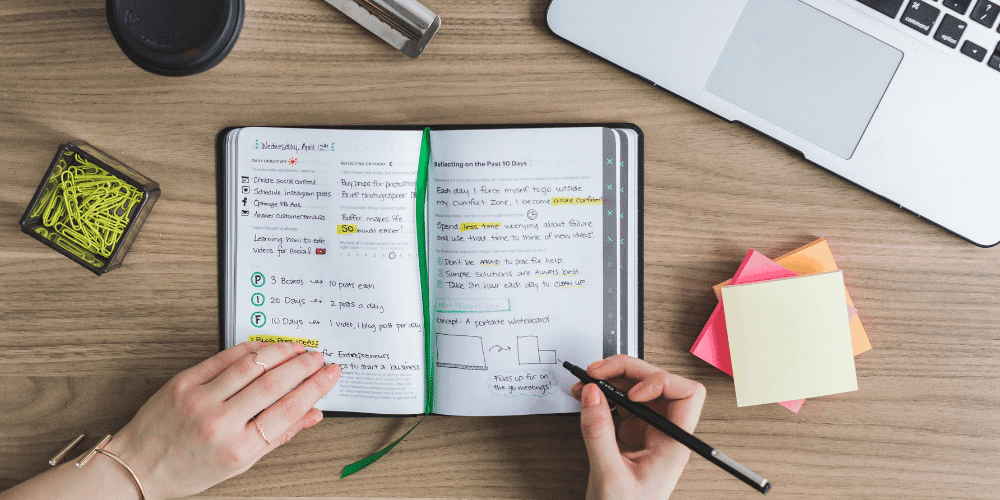 Wednesday, April 12th
DAILY OBJECTIVES
Create social content
Schedule Instagram posts
Optimize FB Ads
Answer customer emails
Learning how to edit
videos for social
P 3 Boards → 10 posts each
I 20 Days → 2 posts a day
F 10 Days → 1 video, 1 blog post per day
BLOG POST IDEAS:
for Entrepreneurs
to start a business
REFLECTING ON TODAY
Buy props for
Brief photographer
Buffer makes life
SO much easier!
Reflecting on the Past 10 Days
Each day I force myself to go outside
my comfort zone, I become more confident!
Spend less time worrying about failure
and use that time to think of new ideas!
1 Don't be AFRAID to ask for help
2 Simple solutions are ALWAYS best
3 Take an hour each day to CLEAN UP
Concept: A portable whiteboard
Folds up for on
the go meetings!
command
option